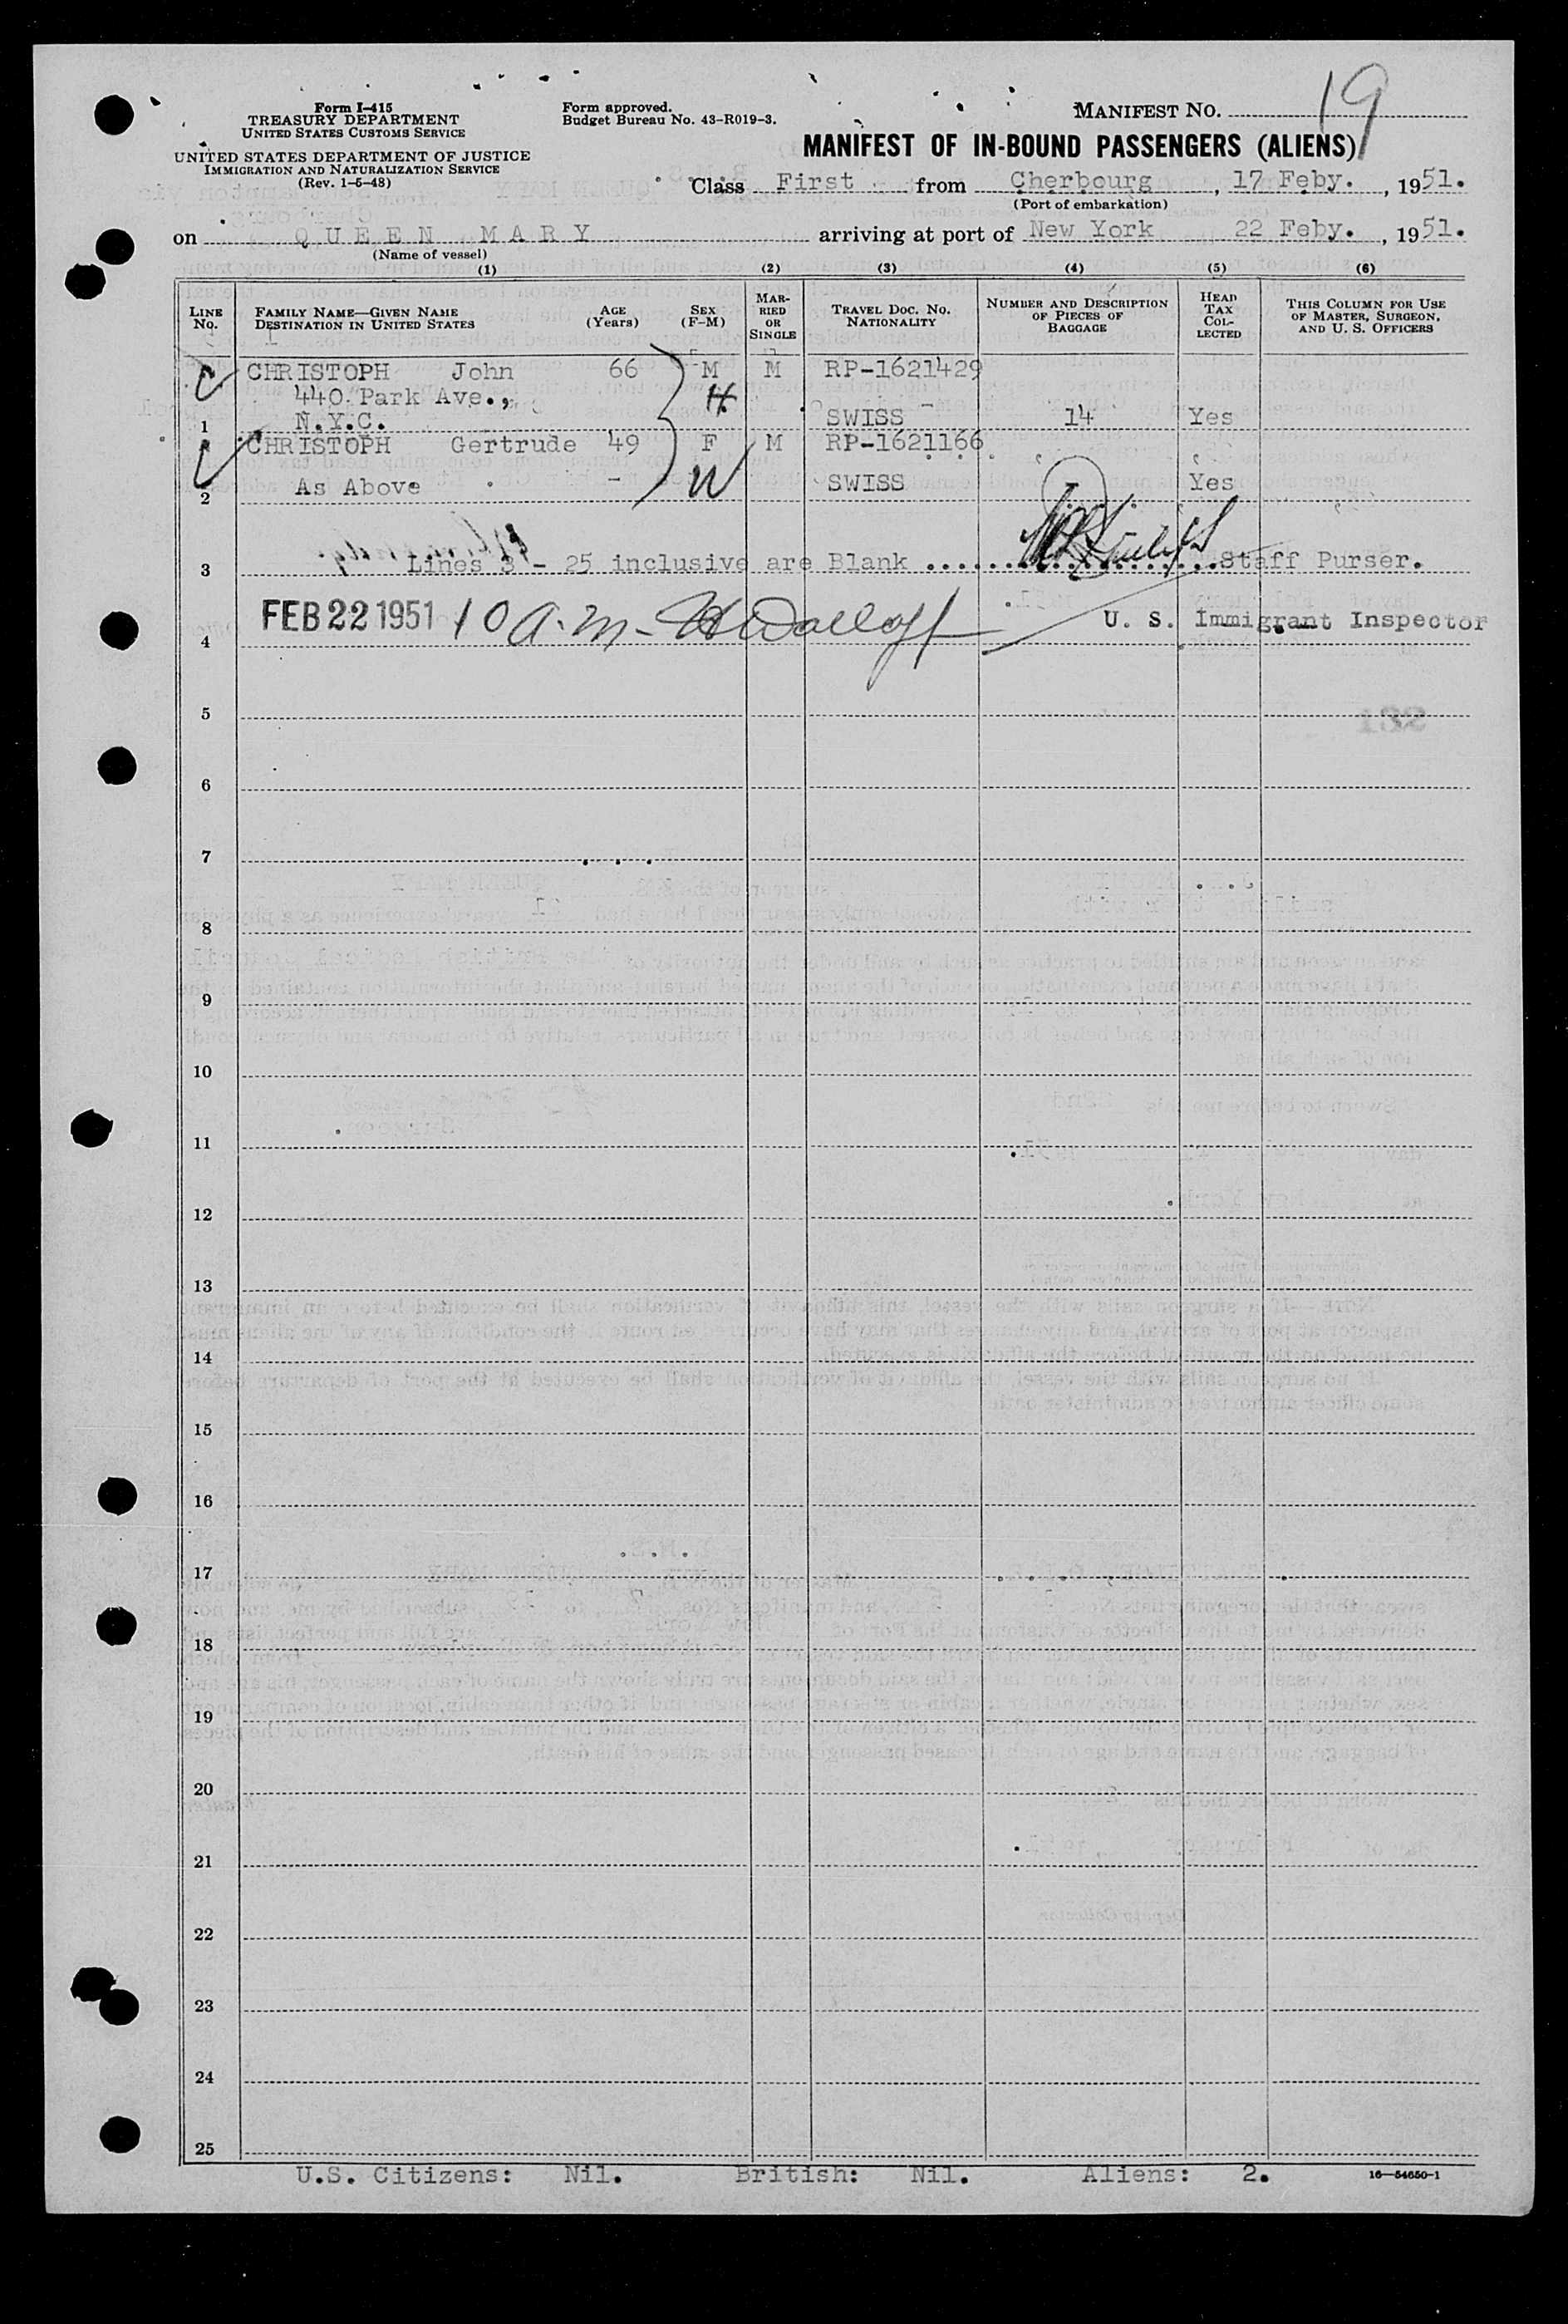 Form I-415
TREASURY DEPARTMENT
UNITED STATES CUSTOMS SERVICE
UNITED STATES DEPARTMENT OF JUSTICE
IMMIGRATION AND NATURALIZATION SERVICE
(Rev. 1-5-48)
Form approved.
Budget Bureau No. 43-R019-3.
MANIFEST NO. 19
MANIFEST OF IN-BOUND PASSENGERS (ALIENS)
Class First from Cherbourg, 17 Feby., 1951.
(Port of embarkation)
on QUEEN MARY arriving at port of New York 22 Feby., 1951.
(Name of vessel)
(1) (2) (3) (4) (5) (6)
LINE No. FAMILY NAME—GIVEN NAME DESTINATION IN UNITED STATES AGE (Years) SEX (F-M) MARRIED OR SINGLE TRAVEL DOC. NO. NATIONALITY NUMBER AND DESCRIPTION OF PIECES OF BAGGAGE HEAD TAX COLLECTED THIS COLUMN FOR USE OF MASTER, SURGEON, AND U. S. OFFICERS
CHRISTOPH John 66 M M RP-1621429
440 Park Ave., H
1 N.Y.C. SWISS 14 Yes
CHRISTOPH Gertrude 49 F M RP-1621166
2 As Above - W SWISS Yes
3 Lines 3 - 25 inclusive are Blank ........................Staff Purser.
4 FEB 22 1951 10 a.m. U. S. Immigrant Inspector
5
6
7
8
9
10
11
12
13
14
15
16
17
18
19
20
21
22
23
24
25
U.S. Citizens: Nil. British: Nil. Aliens: 2. 16—54650-1